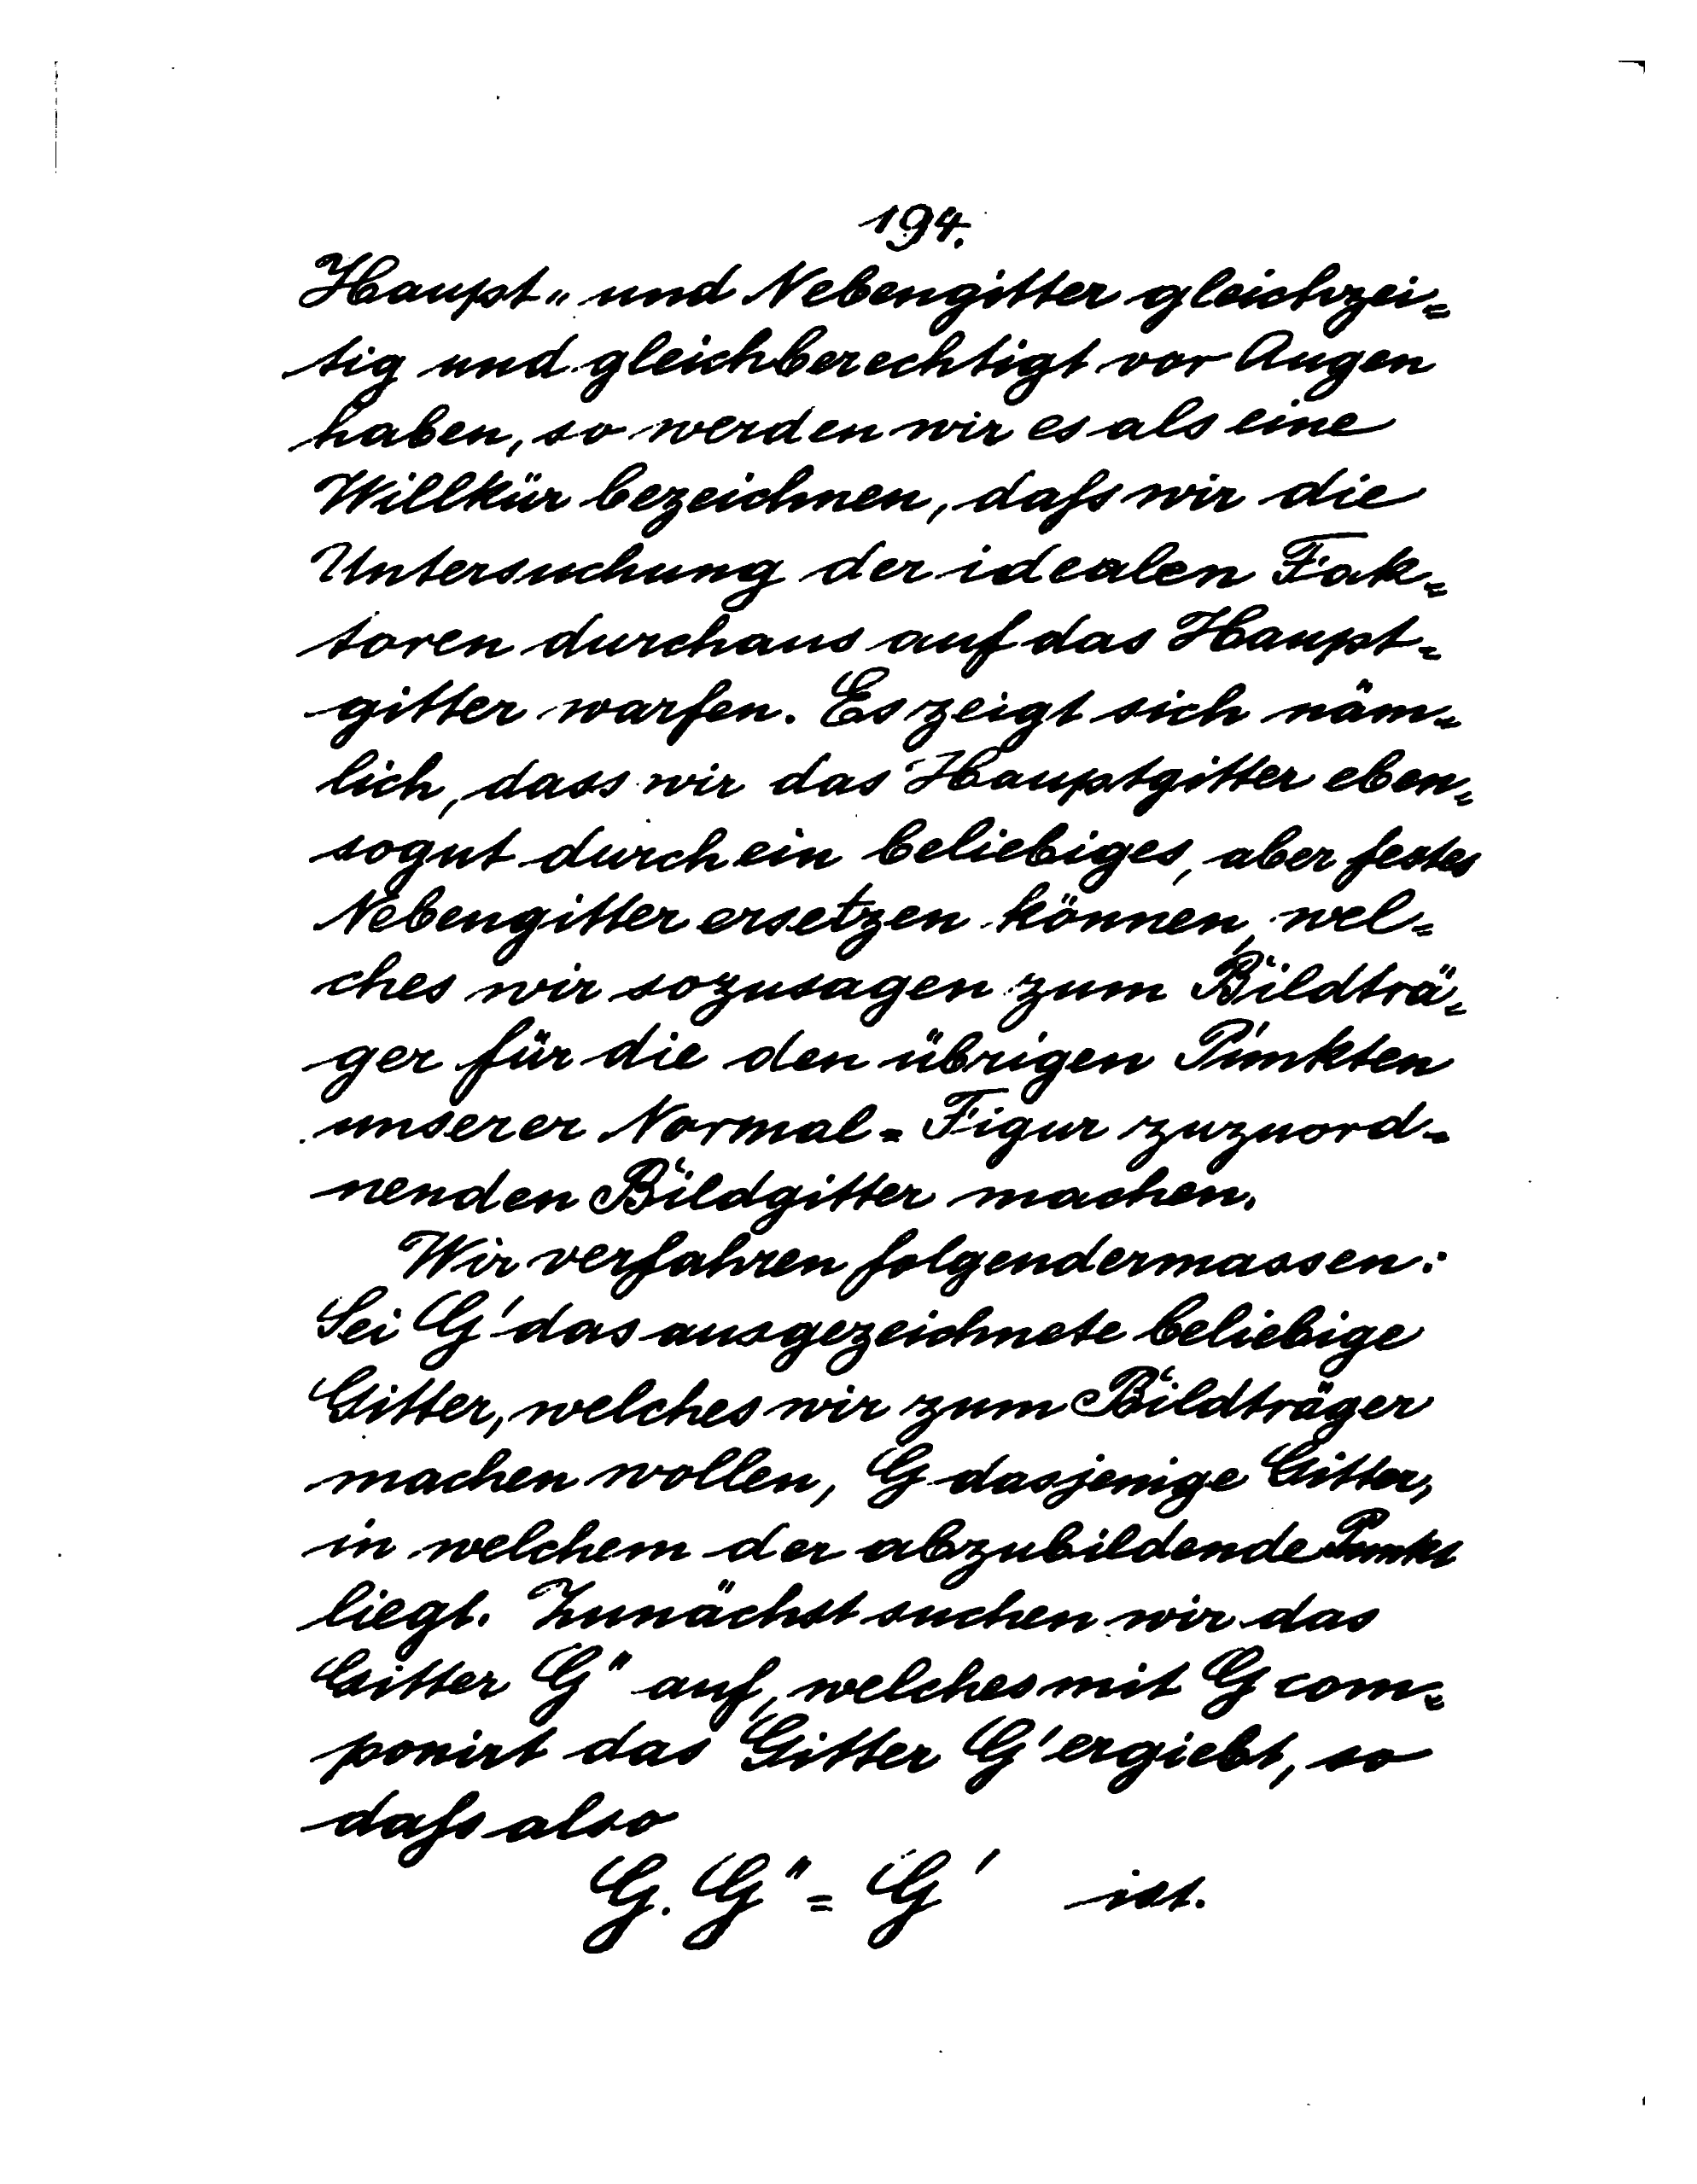 194.
Haupt- und Nebengitter gleichzei-
tig und gleichberechtigt vor Augen
haben, so werden wir es als eine
Willkür bezeichnen, daſs wir die
Untersuchung der idealen Fak-
toren durchaus auf das Haupt-
gitter warfen. Es zeigt sich näm-
lich, dass wir das Hauptgitter eben-
sogut durch ein beliebiges, aber festes
Nebengitter ersetzen können, wel-
ches wir sozusagen zum Bildträ-
ger für die den übrigen Punkten
unserer Normal-Figur zuzuord-
nenden Bildgitter machen.
Wir verfahren folgendermassen:
Sei G' das ausgezeichnete beliebige
Gitter, welches wir zum Bildträger
machen wollen, G dasjenige Gitter,
in welchem der abzubildende Punkt
liegt. Zunächst suchen wir das
Gitter G" auf, welches mit G com-
ponirt das Gitter G' ergiebt, so
daſs also
G. G" = G' ist.